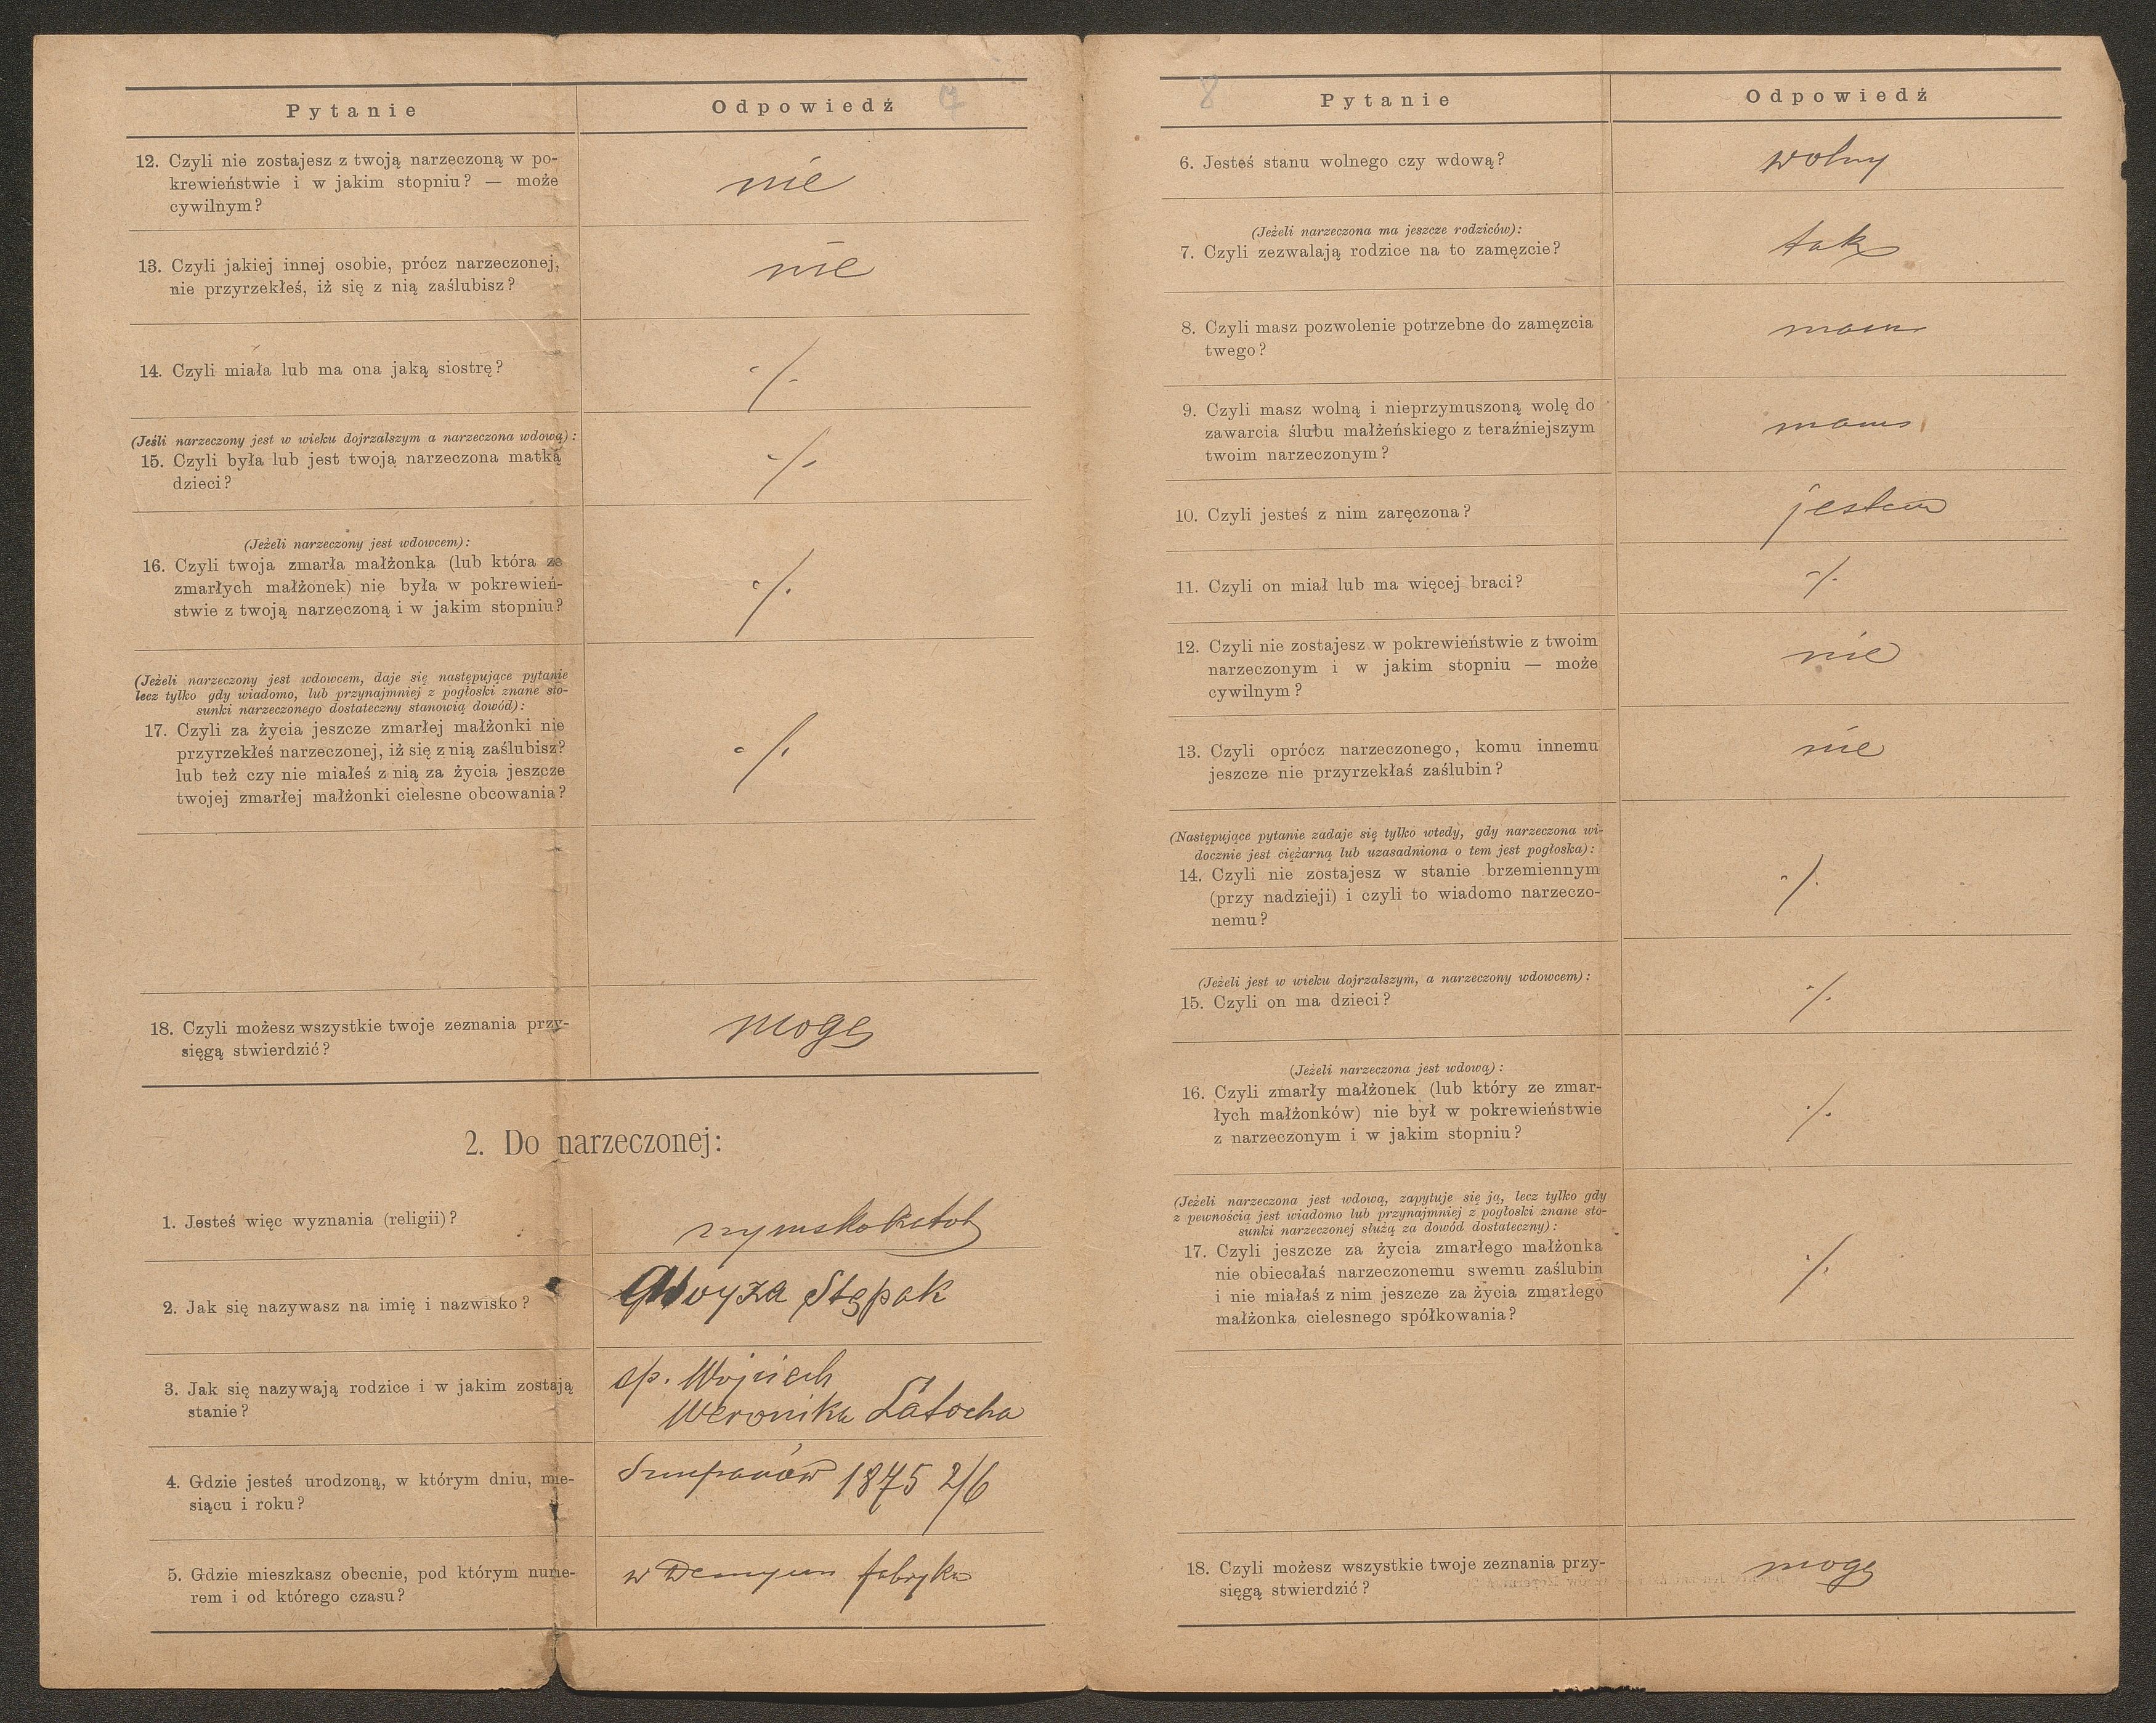 7
Pytanie
Odpowiedź
12. Czyli nie zostajesz z twoją narzeczoną w po-
krewieństwie i w jakim stopniu? — może
cywilnym?
nie
13. Czyli jakiej innej osobie, prócz narzeczonej,
nie przyrzekłeś, iż się z nią zaślubisz?
nie
14. Czyli miała lub ma ona jaką siostrę?
·/.
(Jeśli narzeczony jest w wieku dojrzalszym a narzeczona wdową):
15. Czyli była lub jest twoją narzeczona matką
dzieci?
·/.
(Jeżeli narzeczony jest wdowcem):
16. Czyli twoja zmarła małżonka (lub która ze
zmarłych małżonek) nie była w pokrewień-
stwie z twoją narzeczoną i w jakim stopniu?
·/.
(Jeżeli narzeczony jest wdowcem, daje się następujące pytanie
lecz tylko gdy wiadomo, lub przynajmniej z pogłoski znane sto-
sunki narzeczonego dostateczny stanowią dowód):
17. Czyli za życia jeszcze zmarłej małżonki nie
przyrzekłeś narzeczonej, iż się z nią zaślubisz?
lub też czy nie miałeś z nią za życia jeszcze
twojej zmarłej małżonki cielesne obcowania?
·/.
18. Czyli możesz wszystkie twoje zeznania przy-
sięgą stwierdzić?
mogę
2. Do narzeczonej:
1. Jesteś więc wyznania (religii)?
rzymskokatol
2. Jak się nazywasz na imię i nazwisko?
Stępak
3. Jak się nazywają rodzice i w jakim zostają
stanie?
sp. Wojciech
Weronika Łatocha
4. Gdzie jesteś urodzoną, w którym dniu, mie-
siącu i roku?
1875 2/6
5. Gdzie mieszkasz obecnie, pod którym nume-
rem i od którego czasu?
w fabryka
8
Pytanie
Odpowiedź
6. Jesteś stanu wolnego czy wdową?
wolny
(Jeżeli narzeczona ma jeszcze rodziców):
7. Czyli zezwalają rodzice na to zamęzcie?
tak
8. Czyli masz pozwolenie potrzebne do zamęzcia
twego?
mam
9. Czyli masz wolną i nieprzymuszoną wolę do
zawarcia ślubu małżeńskiego z teraźniejszym
twoim narzeczonym?
mam
10. Czyli jesteś z nim zaręczona?
jestem
11. Czyli on miał lub ma więcej braci?
·/.
12. Czyli nie zostajesz w pokrewieństwie z twoim
narzeczonym i w jakim stopniu — może
cywilnym?
nie
13. Czyli oprócz narzeczonego, komu innemu
jeszcze nie przyrzekłaś zaślubin?
nie
(Następujące pytanie zadaje się tylko wtedy, gdy narzeczona wi-
docznie jest ciężarną lub uzasadniona o tem jest pogłoska):
14. Czyli nie zostajesz w stanie brzemiennym
(przy nadzieji) i czyli to wiadomo narzeczo-
nemu?
·/.
(Jeżeli jest w wieku dojrzalszym, a narzeczony wdowcem):
15. Czyli on ma dzieci?
·/.
(Jeżeli narzeczona jest wdową):
16. Czyli zmarły małżonek (lub który ze zmar-
łych małżonków) nie był w pokrewieństwie
z narzeczonym i w jakim stopniu?
·/.
(Jeżeli narzeczona jest wdową, zapytuje się ją, lecz tylko gdy
z pewnością jest wiadomo lub przynajmniej z pogłoski znane sto-
sunki narzeczonej służą za dowód dostateczny):
17. Czyli jeszcze za życia zmarłego małżonka
nie obiecałaś narzeczonemu swemu zaślubin
i nie miałaś z nim jeszcze za życia zmarłego
małżonka cielesnego spółkowania?
·/.
18. Czyli możesz wszystkie twoje zeznania przy-
sięgą stwierdzić?
mogę